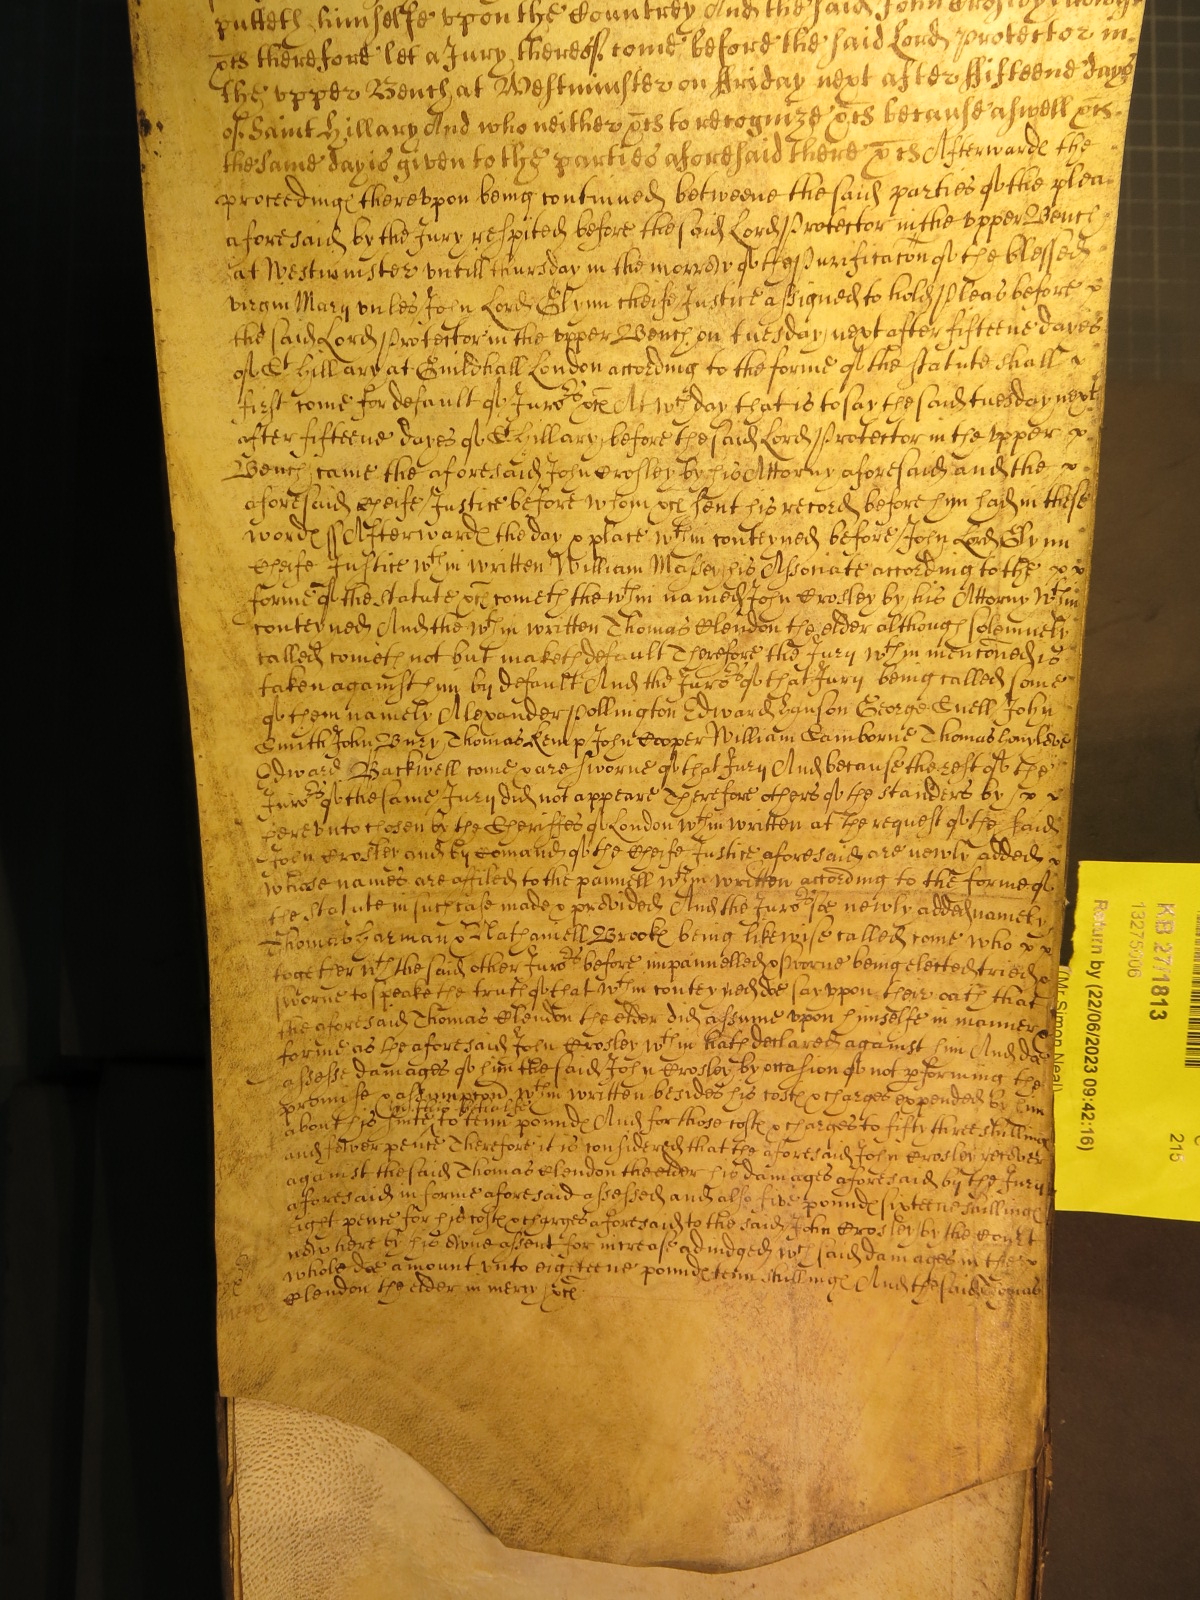 putteth himselfe upon the Countrey And the said John Crosley
xcs therefore let a Jury thereof come before the said Lord Protector in
the upper Bench at Westminster on ffriday next after ffifteene dayes
of Saint Hillary And who neither xcs to recognize xcs because aswell xcs
the same day is given to the parties aforesaid there xcs Afterwards the
proceedings thereupon being continued betweene the said parties of the plea
aforesaid by the Jury respited before the said Lord Protector in the upper Bench
at Westminster untill thursday in the morrow of the Purificacon of the blessed
virgin Mary unles John Lord Glynn cheife Justice assigned to hold Pleas before x
the said Lord Protector in the upper Bench on tuesday next after fifteene dayes
of St Hillary at Guildhall London according to the forme of the statute shall x
first come for default of Juro:rs xc At wch day that is to say the said tuesday next
after fifteene dayes of St Hillary before the said Lord Protector in the upper x
Bench came the aforesaid John Crosley by his Attorny aforesaid and the x
aforesaid cheife Justice before whom xc sent his record before him had in these
words ss Afterwards the day x place wthin conteyned before John Lord Glynn
Cheife Justice wthin written William Massey his Associate according to the x x
forme of the statute xc cometh the wthin named John Crosley by his Attorny wthin
conteyned And the wthin written Thomas Clendon the elder although solemnely
called cometh not but maketh default Therefore the Jury wthin menconed is
taken against him by default And the Juro:rs of that Jury being called some
of them namely Alexander Pollington Edward Hanson George Snell John
Smith John Bury Thomas Kemp John Cooper William Camborne Thomas
Edward Backwell come x are sworne of that Jury And because the rest of the
Juro:rs of the same Jury did not appeare Therefore others of the standers by x x
hereunto chosen by the Sheriffes of London wthin written at the request of the said
John Crosley and by comand of the Cheife Justice aforesaid are newly added x
whose names are affiled to the pannell wthin written according to the forme of
the statute in such case made x provided And the Juro:rs soe newly added namely
Thomas Harman x Nathaniell Brooks being likewise called come who x x
together wth the said other Juro:rs before impannelled x sworne being elected tried x
sworne to speake the truth of that wthin conteyned doe say upon their oath that
the aforesaid Thomas Clendon the elder did assume upon himselfe in manner x
forme as the aforesaid John Crosley wthin hath declared against him And doe
assesse damages of him the said John Crosley by occasion of not pforming the
promise x assumpcon wthin written besides his costs x charges expended by him
about his suite in this behalfe to tenn pounds And for those costs x charges to fifty three shillings
and fower pence Therefore it is considered that the aforesaid John Crosley recover
against the said Thomas Clendon the elder his damages aforesaid by the Jury
aforesaid in forme aforesaid assessed and also five pounds sixteene shillings
eight pence for his costs x charges aforesaid to the said John Crosley by the Court
now here by his owne assent for increase adiudged wch said damages in the x
whole doe amount unto eighteene pounds tenn shillings And the said Thomas
Clendon the elder in mercy xc
mercy
KB 27/1813
13275906
Return by (22/06/2023 09:42:16)
(Mr Simon Neal)
215